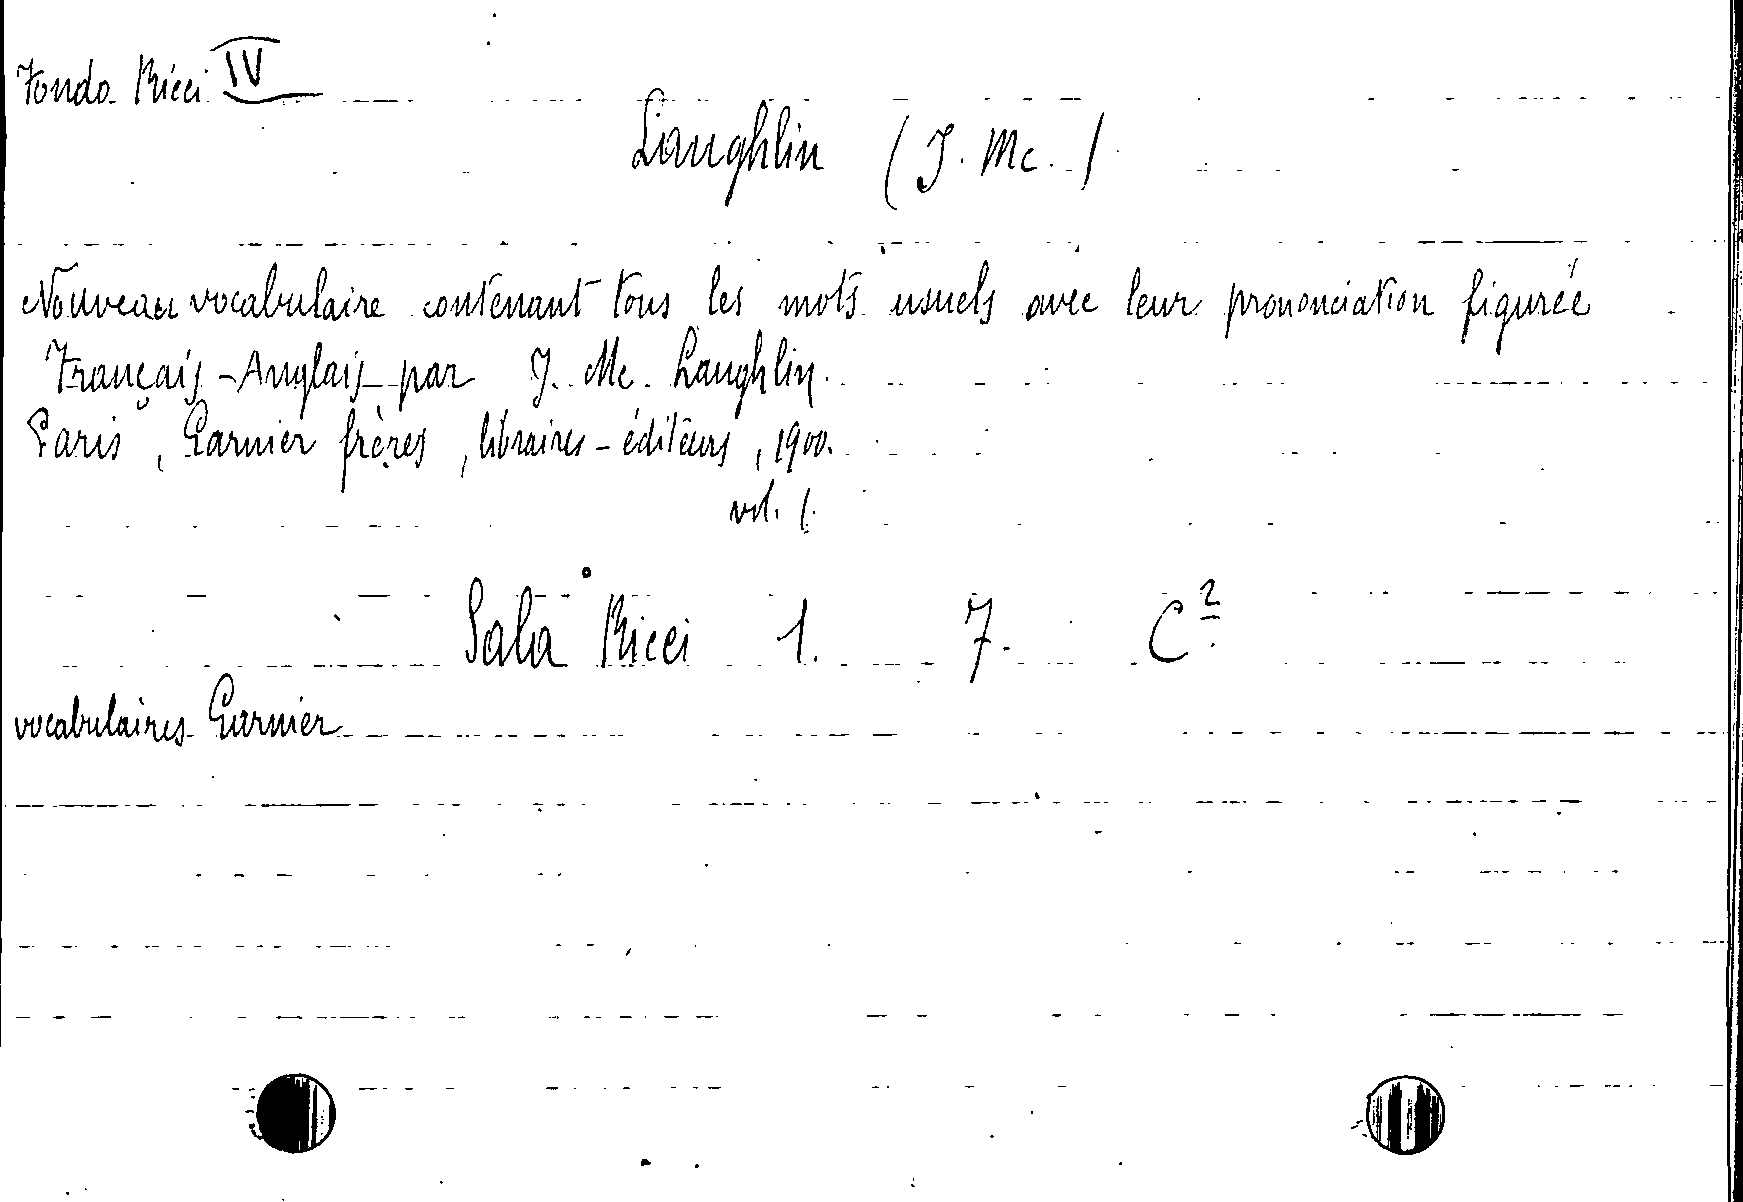 Fondo Ricci IV
Laughlin (J. Mc.)
Nouveau vocabulaire contenant tous les mots usuels avec leur prononciation figurée
Français-Anglais par J. Mc. Laughlin.
Paris, Garnier frères, libraires-éditeurs, 1900.
vol. 1.
Sala Ricci 1. 7. C²
vocabulaires Garnier